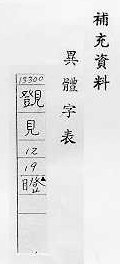 補充資料
異體字表
13300
覴
見
12
19
瞪